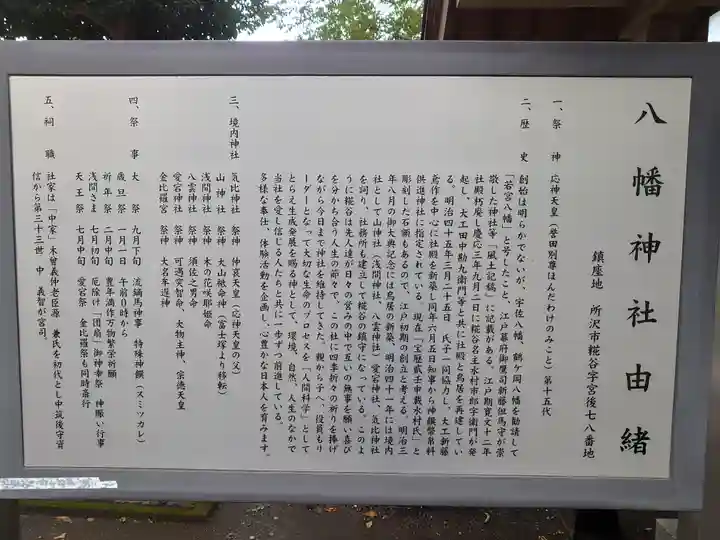 八幡神社由緒
鎮座地　所沢市糀谷字宮後七八番地
一、祭　神　応神天皇（誉田別尊ほんだわけのみこと）第十五代
二、歴　史　創始は明らかでないが、宇佐八幡、鶴ケ岡八幡を勧請して
「若宮八幡」と号したこと、江戸幕府御鷹司新藤但馬守が崇
敬した神社等「風土記稿」に記載がある。江戸期寛文十二年
社殿朽廃し慶応三年九月二日に糀谷名主水村市郎字衛門が発
起し、大工田中勘九衛門等と共に社殿と鳥居を再建してい
る。明治四十五年三月二十五日、氏子一同協力し、大工新藤
鳶作を中心に社殿を新築し同年六月五日知事から神饌幣帛料
供進神社に指定されている。現在「宝歴貳壬申載水村氏」と
彫刻した石額もあるので、江戸初期の創立と考える。明治三
年八月の御大典記念には鳥居の新築、明治四十一年には境内
社として山神社（浅間神社、八雲神社）愛宮神社、気比神社
を詞り、社務所も建立して糀谷の鎮守になっている。このよ
うに糀谷は先人達が日々の営みの中で互いの無事を願い喜び
を分かち合り人生の節々で、この社に四季折々の祈りを捧げ
ながら今日まで神社を維持してきた。親から子へ、役員もリ
ーダーとなって大切な生命のプロセスを「人間科学」として
とらえ生成発展を賜る神として、環境、自然、人生のなかで
当社を愛し信じる人たちと共に一歩ずつ前進している。
多様な奉仕、体験活動を企画し、心豊かな日本人を育みます。
三、境内神社　気比神社　祭神　仲哀天皇（応神天皇の父）
山神社　祭神　大山祇命神（富士塚より移転）
浅間神社　祭神　木の花咲耶姫命
八雲神社　祭神　須佐之男命
愛宮神社　祭神　可遇突智命、大物主神、宗徳天皇
金比羅宮　祭神　大名牟遅神
四、祭　事　大　祭　九月下旬　流鏑馬神事　特殊神饌（スミツカレ）
歳旦祭　一月一日　午前０時から
祈年祭　二月中旬　豊年満作万物繁栄祈願
浅間さま　七月初旬　厄除け「団扇」御神幸祭　神賑い行事
天王祭　七月中旬　愛宮祭　金比羅祭も同時斎行
五、祠　職　社家は「中家」木曽義仲老臣源　兼氏を初代とし中筑後守資
信から第三十三世　中　義智が宮司